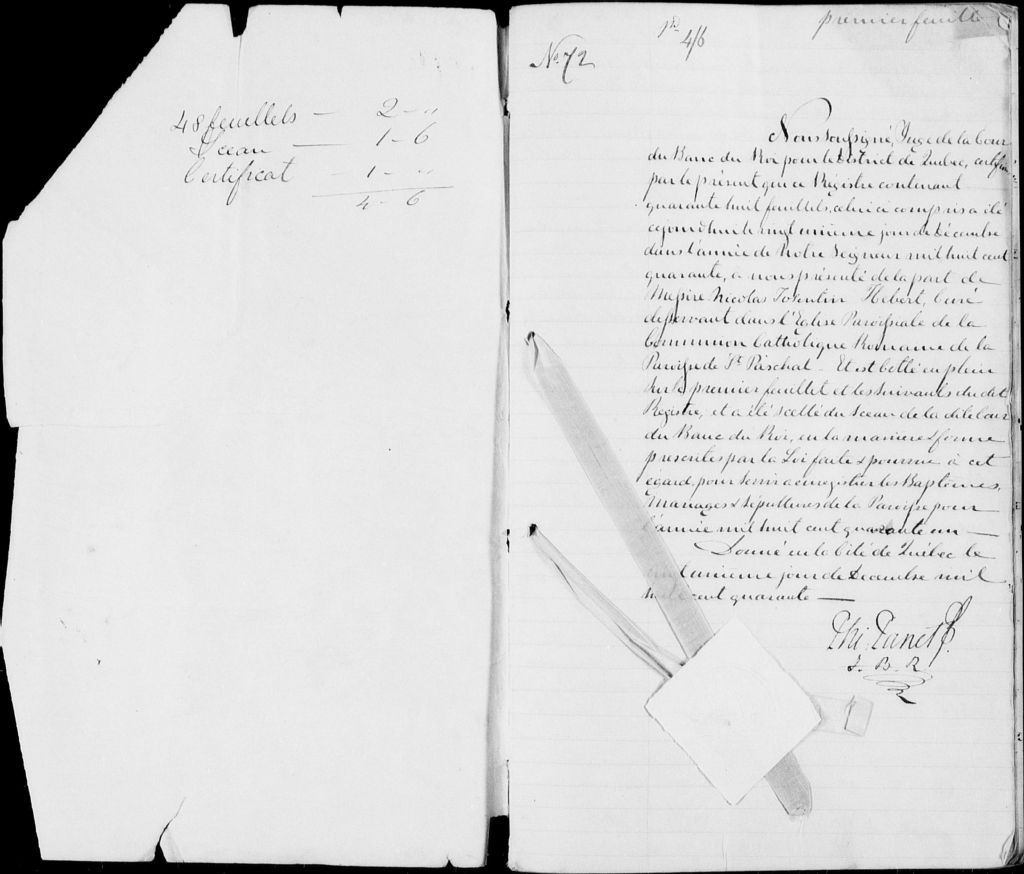 48 feuillets — 2 – „
Sceau — 1 – 6
Certificat – 1 – „
4 – 6
premier feuillet
pd 4/6
No. 72
Nous Soussigné, Juge de la Cour
du Banc du Roi pour le District de Québec, certifions
par le présent que ce Régistre contenant
quarante huit feuillets, celui ci compris a été
cejourd'hui le vingt unième jour de Décembre
dans l'année de Notre Seigneur mil huit cent
quarante, a nous présenté de la part de
Messire Nicolas Tolentin Hébert, Curé
desservant dans l'Eglise Paroissiale de la
Communion Catholique Romaine de la
Paroisse de St. Paschal – Et est cotté en plein
sur le premier feuillet et les suivants du dit
Régistre, et a été scellé du sceau de la dite Cour
du Banc du Roi, en la manière & forme
prescrites par la Loi faite & pourvue à cet
égard, pour servir a enregistrer les Baptêmes,
Mariages & Sépultures de la Paroisse pour
l'année mil huit cent quarante un —
Donné en la Cité de Québec le
vingt unième jour de Décembre mil
huit cent quarante —
Phi: Panet
J. B. R.